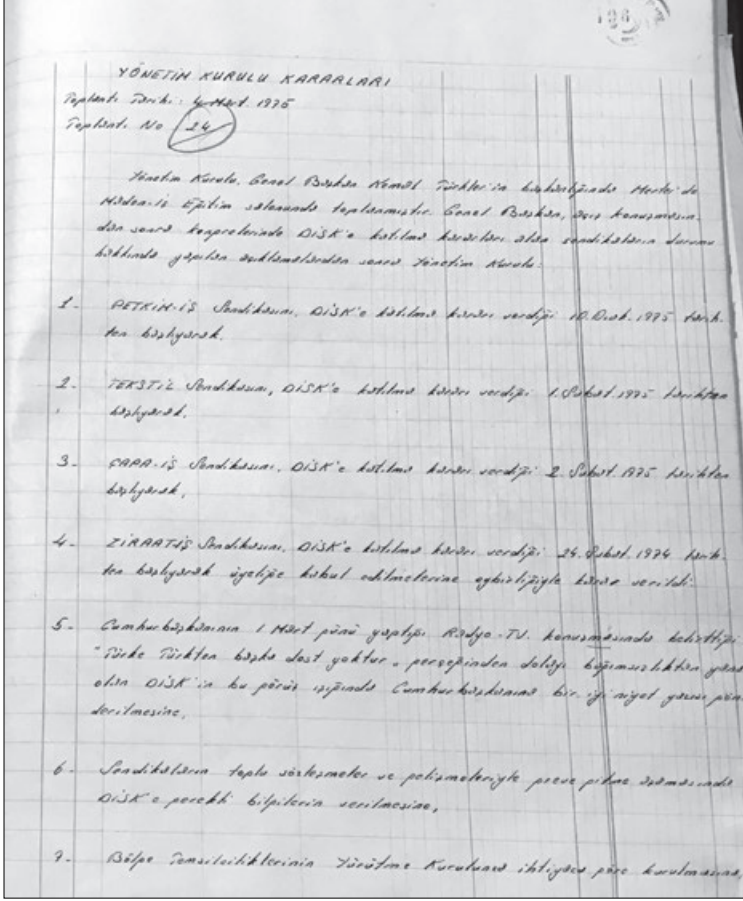 YÖNETİM KURULU KARARLARI
Toplantı Tarihi: 4 Mart 1975
Toplantı No 24
Yönetim Kurulu, Genel Başkan Kemal Türkler'in başkanlığında Merter'de
Maden-İş Eğitim salonunda toplanmıştır. Genel Başkan, açış konuşmasın-
dan sonra kongrelerinde DİSK'e katılma kararları alan sendikaların durumu
hakkında yapılan açıklamalardan sonra Yönetim Kurulu:
1- PETKİM-İŞ Sendikasını, DİSK'e katılma kararı verdiği 10.Ocak.1975 tarih-
ten başlıyarak,
2- TEKSTİL Sendikasını, DİSK'e katılma kararı verdiği 1.Şubat.1975 tarihten
başlıyarak,
3- ÇAPA-İŞ Sendikasını, DİSK'e katılma kararı verdiği 2.Şubat.1975 tarihten
başlıyarak,
4- ZİRAAT-İŞ Sendikasını, DİSK'e katılma kararı verdiği 24.Şubat.1974 tarih-
ten başlıyarak üyeliğe kabul edilmelerine oybirliğiyle karar verildi.
5- Cumhurbaşkanının 1 Mart günü yaptığı Radyo-TV. konuşmasında belirttiği
"Türke Türkten başka dost yoktur" gerçeğinden dolayı bağımsızlıktan yana
olan DİSK'in bu görüş ışığında Cumhurbaşkanına bir iyi niyet yazısı gön-
derilmesine,
6- Sendikaların toplu sözleşmeler ve gelişmeleriyle greve gitme aşamasında
DİSK'e gerekli bilgilerin verilmesine,
7- Bölge Temsilciliklerinin Yürütme Kurulunca ihtiyaca göre kurulmasına,